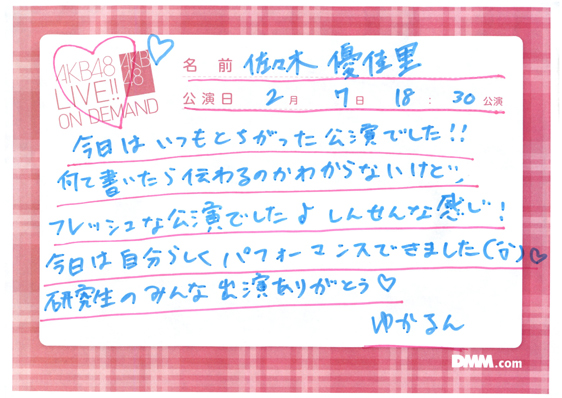 AKB48
LIVE!!
ON DEMAND
AKB
48
名前 佐々木 優佳里
公演日 2月 7日 18:30公演
今日はいつもとちがった公演でした!!
何て書いたら伝わるのかわからないけど、、
フレッシュな公演でしたよ しんせんな感じ!
今日は自分らしくパフォーマンスできました(な)♡
研究生のみんな出演ありがとう♡
ゆかるん
DMM.com